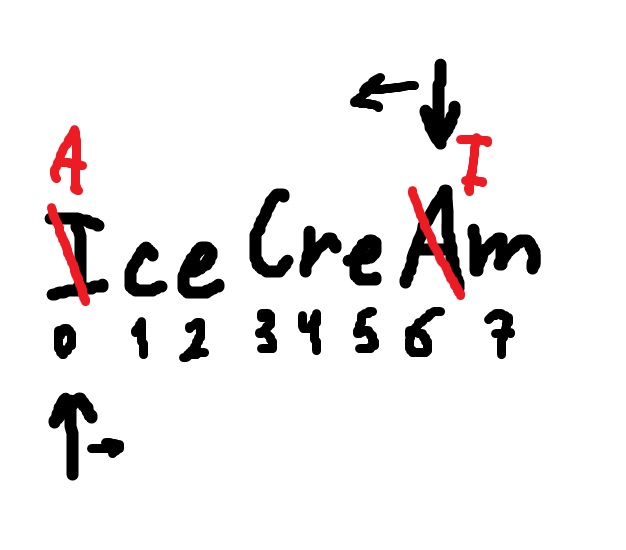 A I
Ice CreAm
0 1 2 3 4 5 6 7